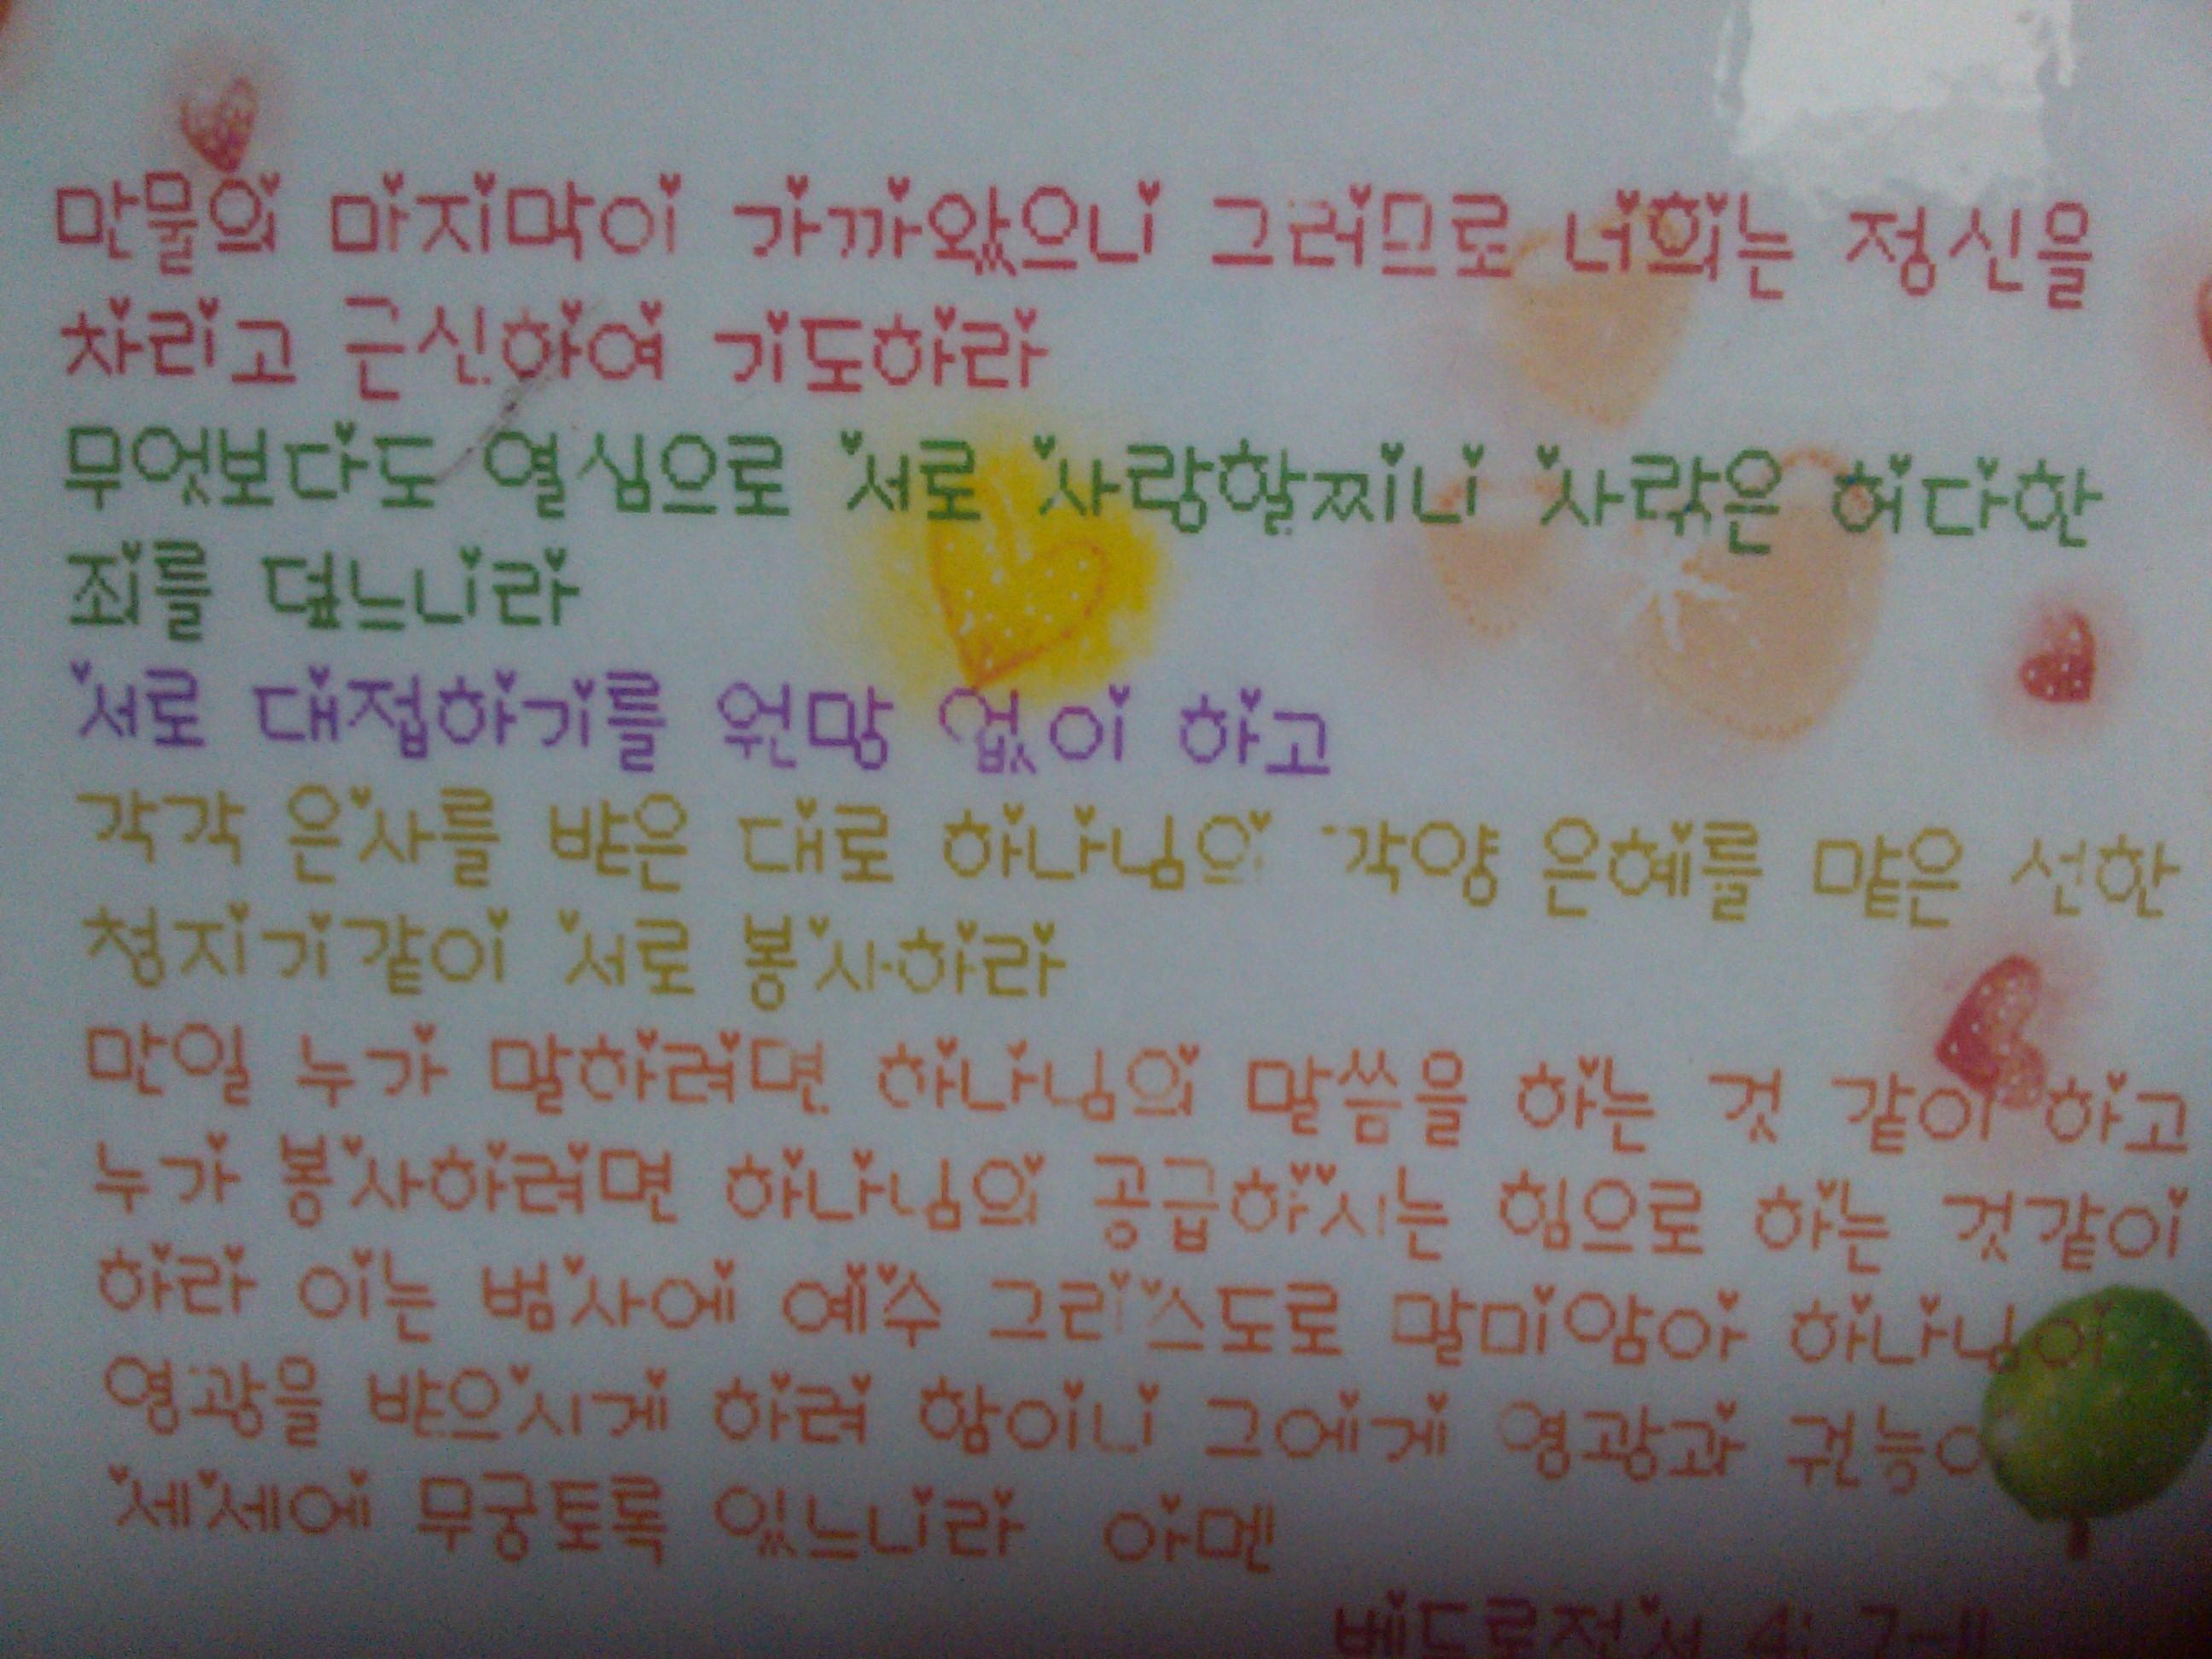 만물의 마지막이 가까왔으니 그러므로 너희는 정신을
차리고 근신하여 기도하라
무엇보다도 열심으로 서로 사랑할찌니 사랑은 허다한
죄를 덮느니라
서로 대접하기를 원망 없이 하고
각각 은사를 받은 대로 하나님의 각양 은혜를 맡은 선한
청지기같이 서로 봉사하라
만일 누가 말하려면 하나님의 말씀을 하는 것 같이 하고
누가 봉사하려면 하나님의 공급하시는 힘으로 하는 것같이
하라 이는 범사에 예수 그리스도로 말미암아 하나님이
영광을 받으시게 하려 함이니 그에게 영광과 권능이
세세에 무궁토록 있느니라 아멘
베드로전서 4: